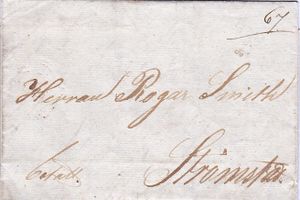 67
Herrau Rogar Smith
betalt.
Strömsta.